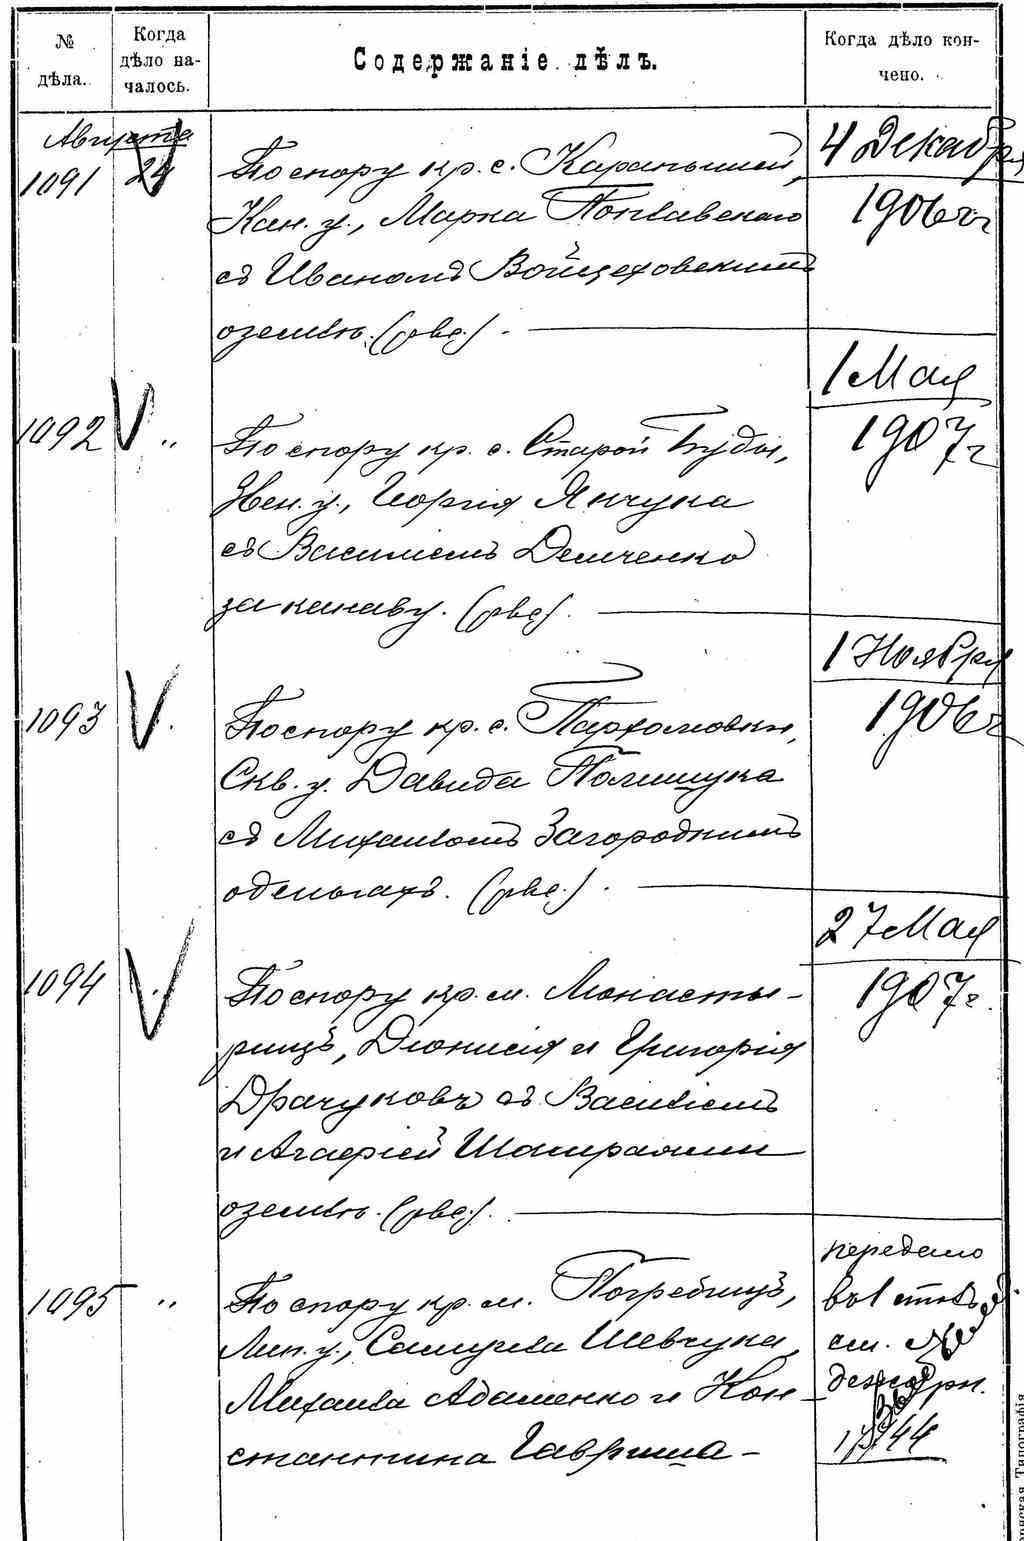 № дѣла.
Когда дѣло на-
чалось.
Содержаніе дѣлъ.
Когда дѣло кон-
чено.
Августа
1091 24
По спору кр. с. Карапышей,
Кан. у., Марка
съ Иваномъ Войцеховскимъ
о землѣ. (рвс.).
4 Декабря
1906 г.
1092 "
По спору кр. с. Старой Буды,
Звен. у., Іоргія Янчука
съ Василіемъ Демченко
за канаву. (рвс.).
1 Мая
1907 г
1093
По спору кр. с. Пархомовки,
Скв. у. Давида Полищука
съ Михаиломъ Загороднимъ
о деньгахъ. (рвс.).
1 Ноября
1906 г
1094
По спору кр. м. Монасты-
рищъ, Діонисія и Григорія
Драчуковъ съ Василіемъ
и Агафіей
о землѣ. (рвс.).
27 Мая
1907 г.
1095 "
По спору кр. м. Погребищъ,
Лип. у., Самуила Шевчука,
Михаила Адаменко и Кон-
стантина Гавриша-
передано
въ 1
см.
декабря.
44
Типографія